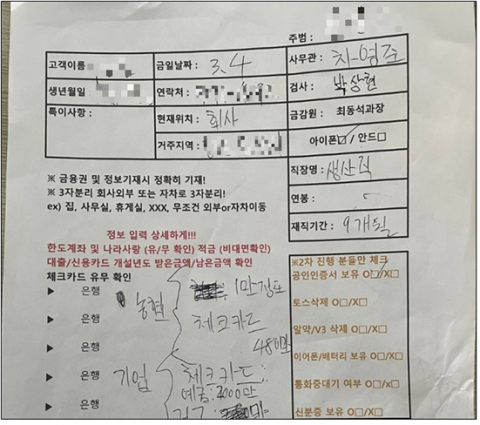 주범 :
고객이름
금일날짜 : 3.4
사무관 : 차영준
생년월일
연락처 :
검사 : 박상현
특이사항 :
현재위치 : 회사
금감원 : 최동석과장
거주지역 :
아이폰☑ / 안드□
직장명 : 생산직
연봉 :
재직기간 : 9개월
※ 금융권 및 정보기재시 정확히 기재!
※ 3자분리 회사외부 또는 자차로 3자분리!
ex) 집, 사무실, 휴게실, XXX, 무조건 외부or자차이동
정보 입력 상세하게!!!
한도계좌 및 나라사랑 (유/무 확인) 적금 (비대면확인)
대출/신용카드 개설년도 받은금액/남은금액 확인
체크카드 유무 확인
▶ 은행 농협 1만정도
▶ 은행 체크카드
▶ 은행
▶ 은행 기업 체크카드
▶ 은행 예금:2000만
※2자 진행 분들만 체크
공인인증서 보유 O□/X□
토스삭제 O□/X□
일약/V3 삭제 O□/X□
이어폰/배터리 보유 O□/X□
통화중대기 여부 O□/x□
신분증 보유 O□/X□